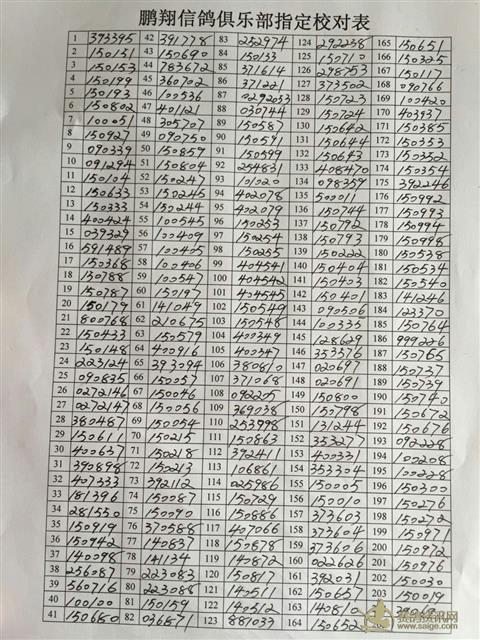 鹏翔信鸽俱乐部指定校对表
1 393395 42 391778 83 252974 124 292238 165 150651
2 150131 43 150690 84 150133 125 150710 166 150325
3 150153 44 783672 85 371614 126 298753 167 150117
4 150199 45 360702 86 371221 127 373502 168 090766
5 150193 46 100536 87 0292053 128 150723 169 100420
6 150802 47 401121 88 030744 129 150724 170 403937
7 100051 48 305707 89 150587 130 150642 171 150385
8 150927 49 090250 90 150591 131 150644 172 150353
9 090339 50 150859 91 150599 132 150643 173 150352
10 091294 51 150804 92 254831 133 408470 174 150354
11 150104 52 150247 93 101020 134 098359 175 392246
12 150633 53 150245 94 402078 135 500011 176 150992
13 150333 54 150244 95 402079 136 150744 177 150993
14 400424 55 100545 96 150253 137 150792 178 150994
15 039329 56 100409 97 150254 138 150793 179 150998
16 591489 57 100405 98 150255 139 150222 180 150538
17 150368 58 100406 99 404541 140 150404 181 150534
18 130788 59 100547 100 404542 141 150403 182 150540
19 150787 60 150197 101 404545 142 150401 183 141246
20 150179 61 141049 102 150549 143 090506 184 123370
21 800768 62 210675 103 150548 144 100335 185 150764
22 150433 63 150579 104 400349 145 128629 186 999226
23 150148 64 400916 105 400347 146 353376 187 150765
24 223124 65 393094 106 380810 147 020697 188 150737
25 090835 66 150057 107 371068 148 020691 189 150739
26 0272146 67 150046 108 092205 149 150800 190 150740
27 0272147 68 150056 109 369038 150 150798 191 150672
28 380487 69 150054 110 253998 151 131244 192 150676
29 150611 70 150215 111 150863 152 353277 193 092228
30 400637 71 150218 112 392411 153 400331 194 100208
31 390898 72 150213 113 106861 154 353304 195 100228
32 407333 73 392112 114 025986 155 150005 196 150300
33 181396 74 150087 115 150729 156 150010 197 150276
34 281550 75 150090 116 150886 157 373603 198 150272
35 150919 76 370588 117 407066 158 373604 199 150971
36 150942 77 140837 118 150878 159 373606 200 150972
37 140098 78 141134 119 140872 160 022626 201 150976
38 256087 79 223083 120 150817 161 392031 202 150030
39 560716 80 223088 121 140511 162 150657 203 150019
40 100100 81 150159 122 140512 163 140810
41 150680 82 036871 123 881033 164 150652